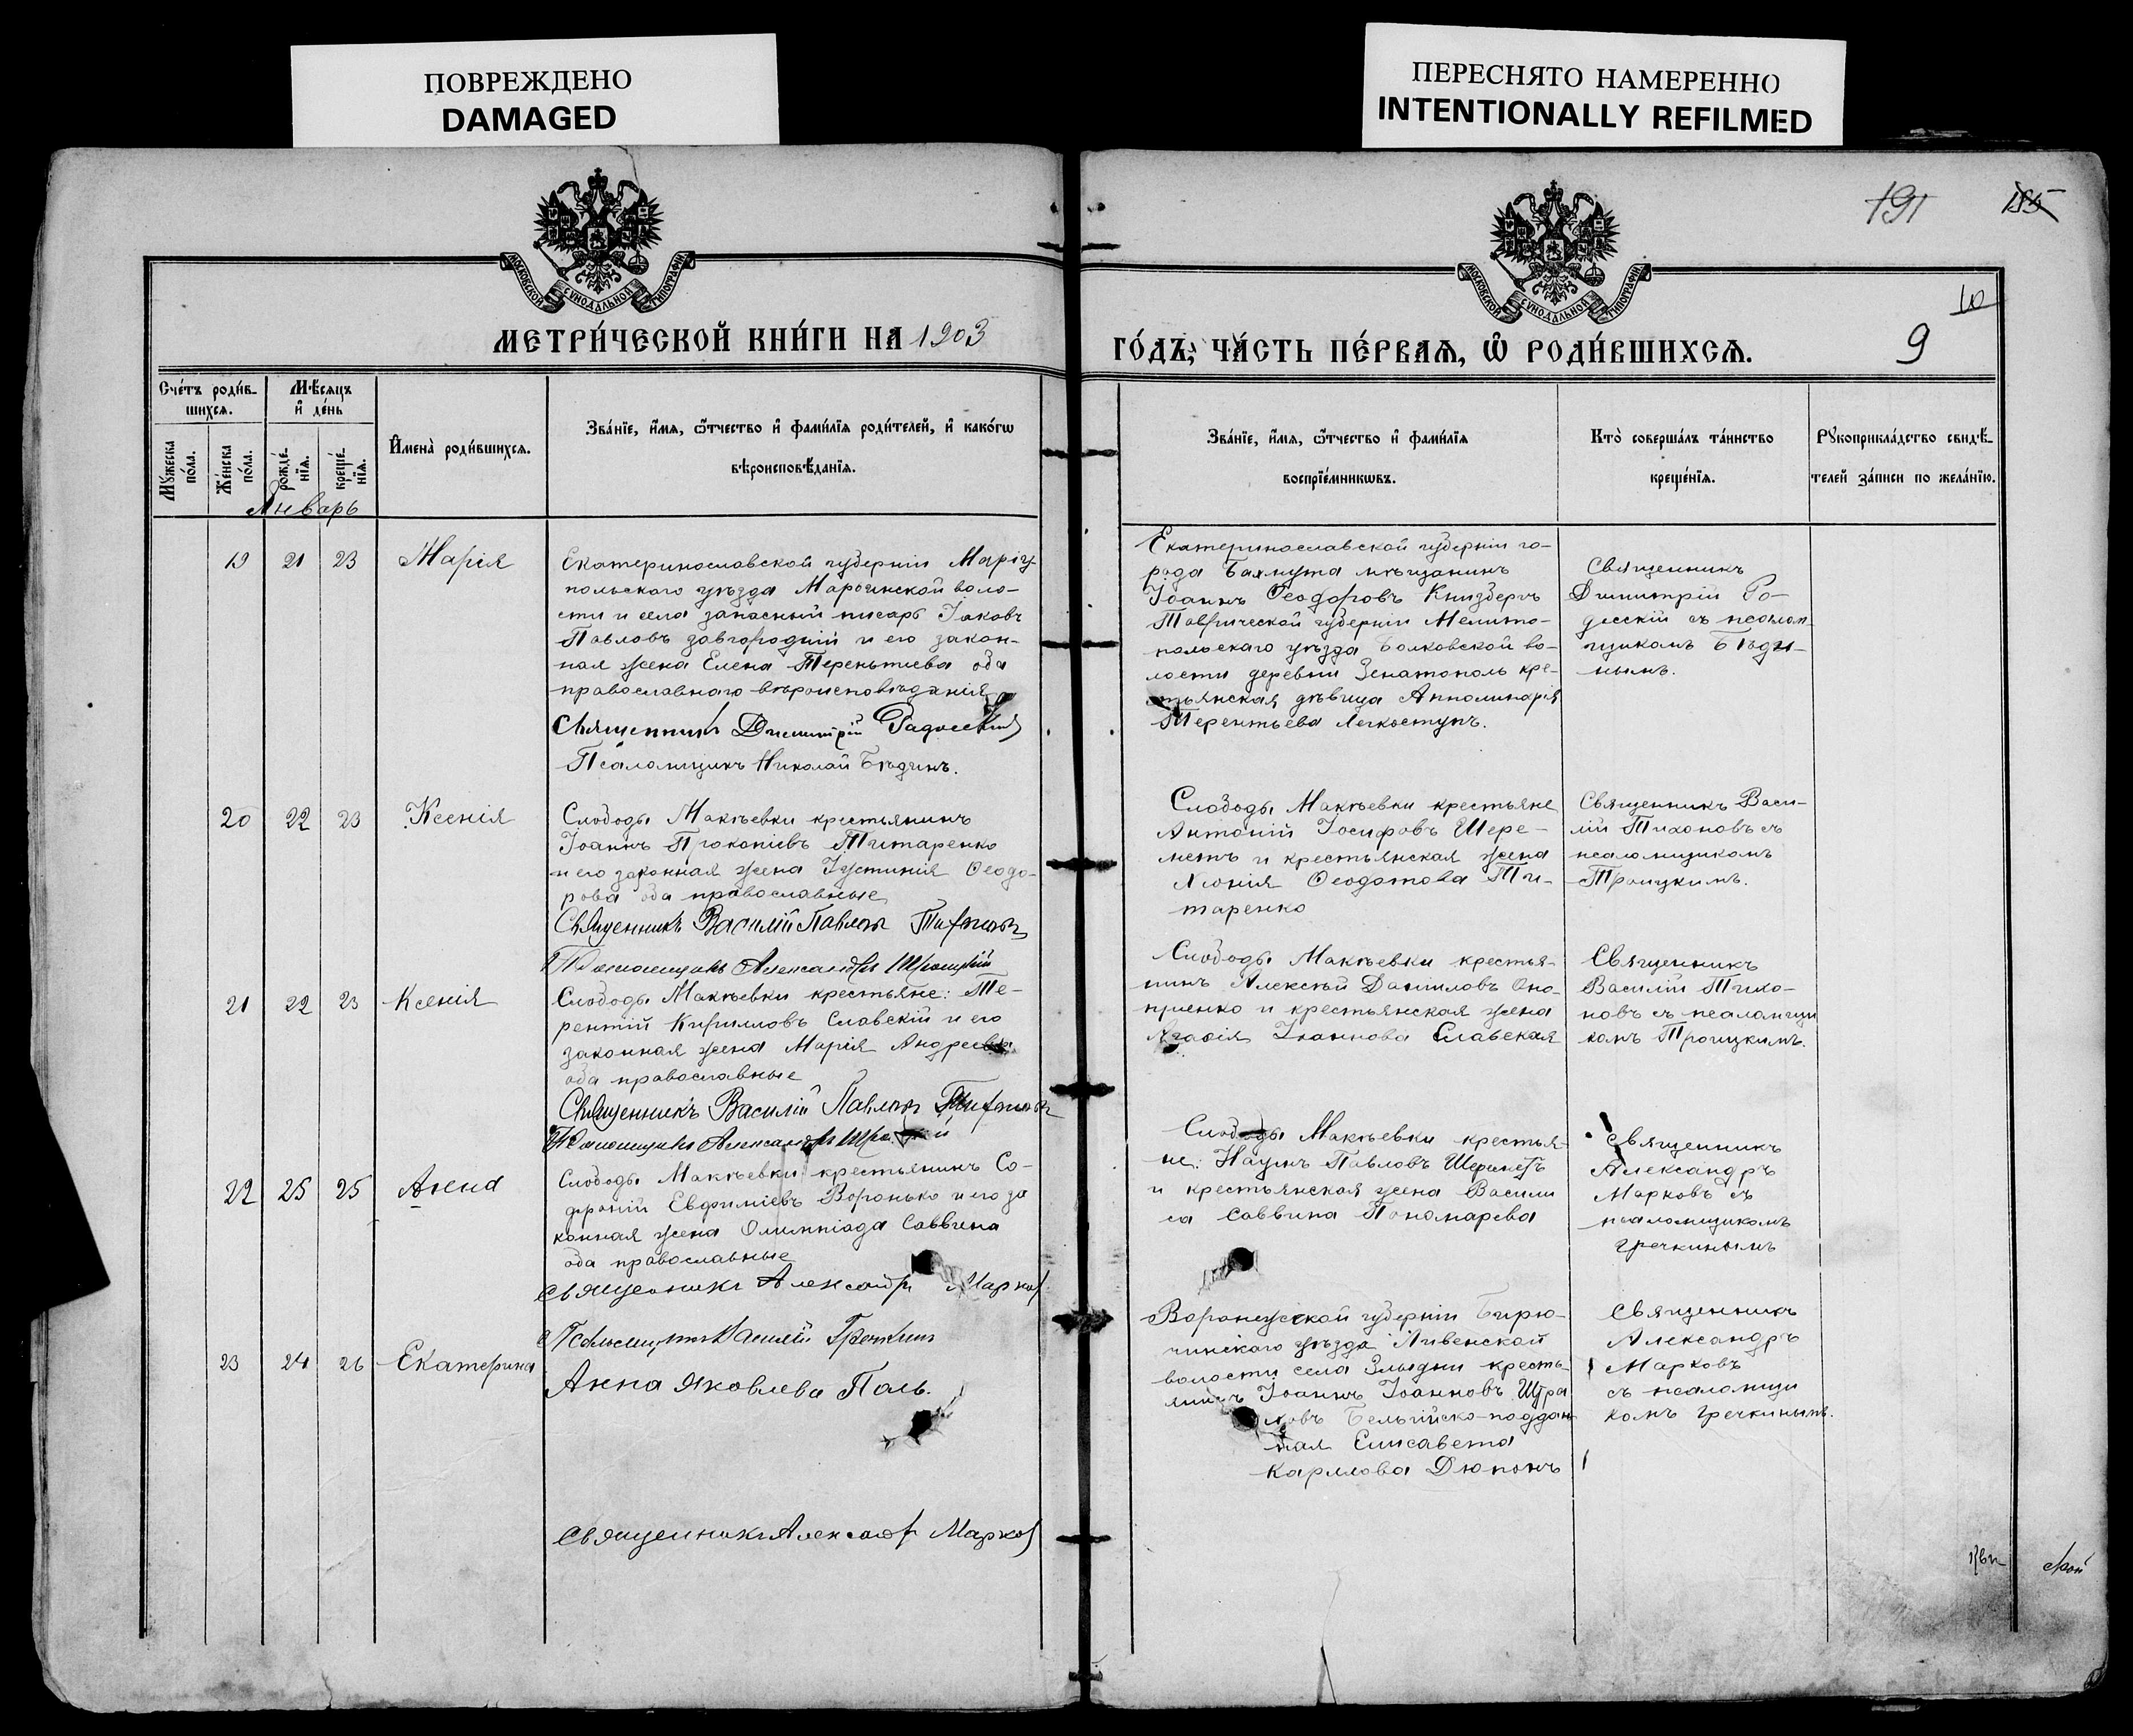 ПОВРЕЖДЕНО
DAMAGED
ПЕРЕСНЯТО НАМЕРЕННО
INTENTIONALLY REFILMED
191
185
МОСКОВСКОЙ СУНОДАЛЬНОЙ ТИПОГРАФІИ
МОСКОВСКОЙ СУНОДАЛЬНОЙ ТИПОГРАФІИ
10
9
МЕТРИ́ЧЕСКОЙ КНИ́ГИ НА 1903
ГО́ДЪ, ЧА́СТЬ ПЕ́РВАѦ, Ѽ РОДИ́ВШИХСѦ.
Сче́тъ роди́в-
шихсѧ.
Мꙋ́жеска по́ла.
Же́нска по́ла.
Мѣ́сѧцъ
и҆ де́нь
рожде́-
нїѧ.
креще́-
нїѧ.
И҆мена̀ роди́вшихсѧ.
Зва́нїе, и҆́мѧ, ѻ҆́тчество и҆ фами́лїѧ роди́телей, и҆ како́гѡ
вѣроисповѣ́данїѧ.
Зва́нїе, и҆́мѧ, ѻ҆́тчество и҆ фами́лїѧ
воспрїе́мникѡвъ.
Кто̀ соверша́лъ та́инство
креще́нїѧ.
Рꙋкоприкла́дство свидѣ́-
телей за́писи по жела́нїю.
Январь
19 21 23 Марія
Екатеринославской губерніи Маріу-
польскаго уѣзда Мароинской воло-
сти и села запасный писарь Іаковъ
Павловъ Завгородній и его закон-
ная жена Елена Терентьева оба
православнаго вѣроисповѣданія
Священникъ Димитрій
Псаломщикъ Николай Бѣдинъ.
Екатеринославской губерніи го-
рода Бахмута мѣщанинъ
Іоаннъ Ѳеодоровъ Книзбергъ
Таврической губерніи Мелито-
польскаго уѣзда Болковской во-
лости деревни Зенатополь кре-
стьянская дѣвица Апполинарія
Терентьева Легкоступъ.
Священникъ
Димитрій Ро-
десскій съ псалом-
щикомъ Бѣди-
нымъ.
20 22 23 Ксенія
Слободы Макѣевки крестьянинъ
Іоаннъ Прокопіевъ Титаренко
и его законная жена Іустинія Ѳеодо-
рова оба православные
Священникъ Василій Павловъ Тихоновъ
Псаломщикъ Александръ Троицкій
Слободы Макѣевки крестьяне
Антоній Іосифовъ Шере-
метъ и крестьянская жена
Хіонія Ѳеодотова Ти-
таренко
Священникъ Васи-
лій Тихоновъ съ
псаломщикомъ
Троицкимъ.
21 22 23 Ксенія
Слободы Макѣевки крестьяне: Те-
рентій Кирилловъ Славскій и его
законная жена Марія Андреева
оба православные
Священникъ Василій Павловъ Тихоновъ
Псаломщикъ Александръ Троицкій
Слободы Макѣевки крестья-
нинъ Алексѣй Даниловъ Оно-
приенко и крестьянская жена
Агафія Іоаннова Славская
Священникъ
Василій Тихо-
новъ съ псаломщи
комъ Троицкимъ.
22 25 25 Анна
Слободы Макѣевки крестьянинъ Со-
фроній Евфиміевъ Воронько и его за
конная жена Олимпіада Саввина
оба православные
Священникъ Александръ Марковъ
Псаломщикъ Василій Гречкинъ
Слободы Макѣевки крестья-
не: Наумъ Павловъ Шереметъ
и крестьянская жена Васили
са Саввина Пономарева
Священникъ
Александръ
Марковъ съ
псаломщикомъ
Гречкинымъ
23 24 26 Екатерина
Анна Яковлева Поль.
Священникъ Александръ Марковъ
Воронежской губерніи Бирю-
чинскаго уѣзда Ливенской
волости села кресть-
янинъ Іоаннъ Іоанновъ
Бельгійско-поддан
ная Елисавета
Карлова Дюпонъ
Священникъ
Александръ
Марковъ
съ псаломщи
комъ Гречкинымъ.